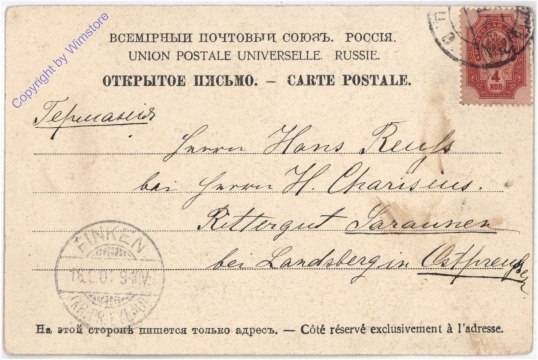 Copyright by Wimstore
ВСЕМІРНЫЙ ПОЧТОВЫЙ СОЮЗЪ. РОССІЯ.
UNION POSTALE UNIVERSELLE. RUSSIE.
ОТКРЫТОЕ ПИСЬМО. — CARTE POSTALE.
4
КОП
Германія
Herrn Hans Reuss
bei Herrn H. Charisius.
Rittergut Saraunen
bei Landsberg in Ostpreußen
FINKEN
На этой сторонѣ пишется только адресъ. — Côté réservé exclusivement à l'adresse.